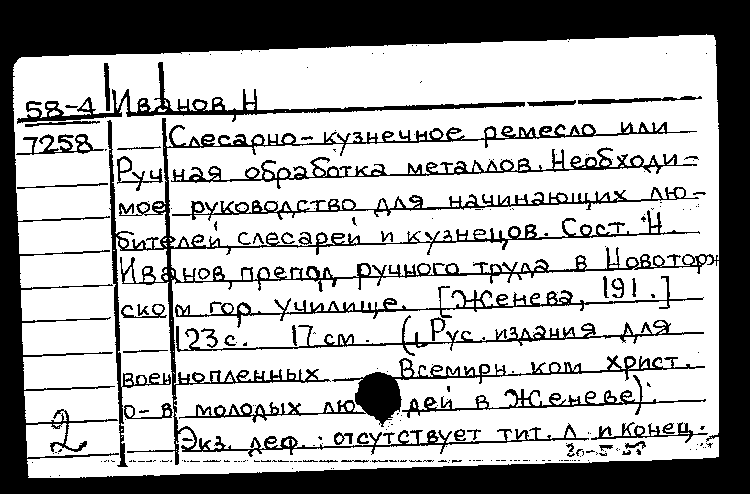 58-4 Иванов, Н
7258 Слесарно-кузнечное ремесло или
Ручная обработка металлов. Необходи=
мое руководство для начинающих лю-
бителей, слесарей и кузнецов. Сост. Н.
Иванов, препод. ручного труда в Новоторж
ском гор. училище. [Женева, 191.]
123с. 17 см. (Рус. издания для
военнопленных Всемирн. ком христ.
о-в молодых лю дей в Женеве).
2 Экз. деф.: отсутствует тит. л и конец.